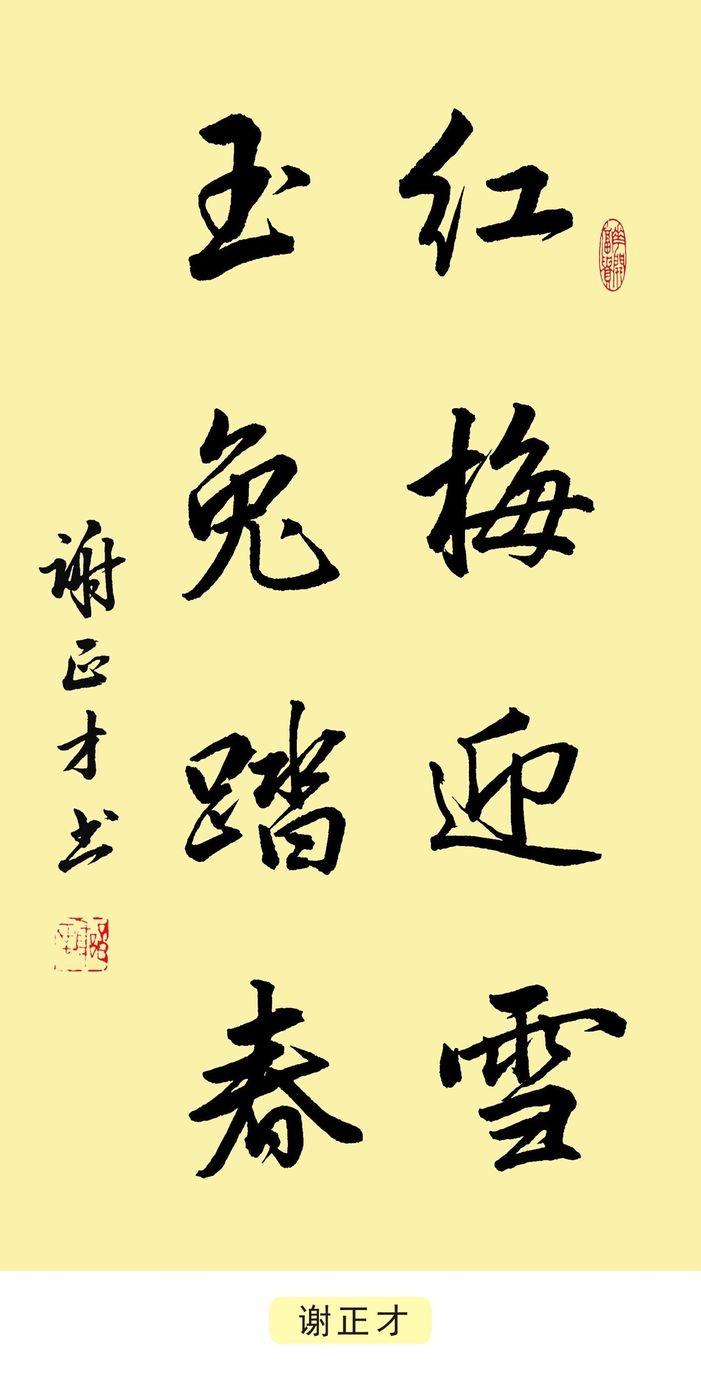 红梅迎雪
玉兔踏春
谢正才书
谢正才